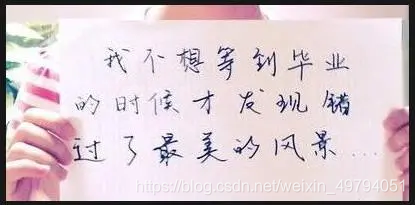 我不想等到毕业
的时候才发现错
过了最美的风景...
https://blog.csdn.net/weixin_49794051